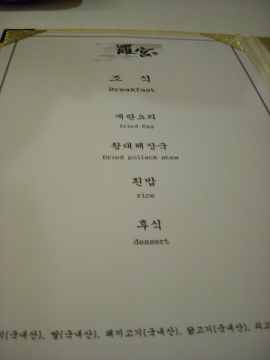 조 식
Breakfast
계란요리
fried Egg
황태해장국
Dried pollack stew
흰밥
rice
후식
dessert
(국내산), 쌀(국내산), 돼지고기(국내산), 닭고기(국내산), 쇠고